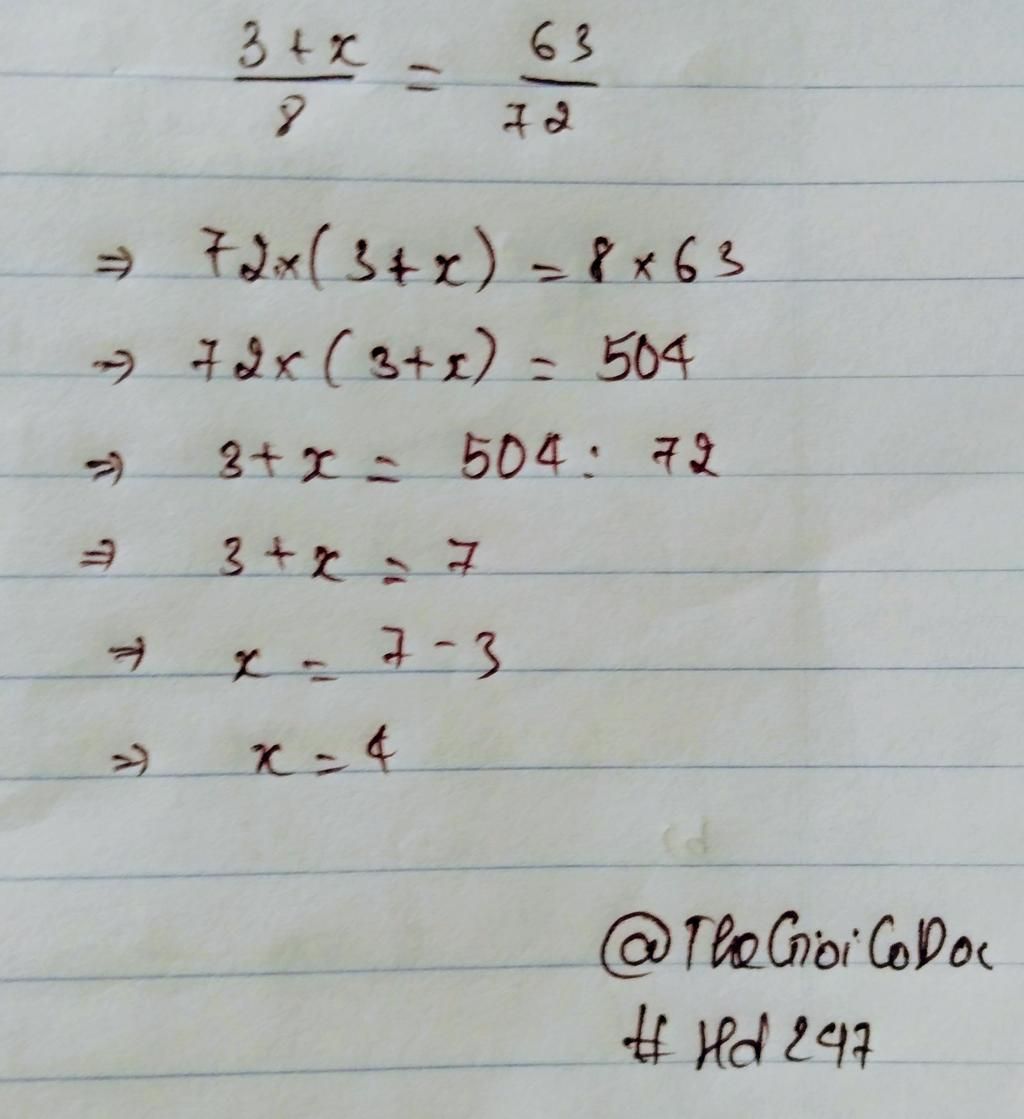 3 + x / 8 = 63 / 72
⇒ 72 × ( 3 + x ) = 8 × 63
⇒ 72 × ( 3 + x ) = 504
⇒ 3 + x = 504 : 72
⇒ 3 + x = 7
⇒ x = 7 - 3
⇒ x = 4
@TheGioiCoDoc
# Hd 247